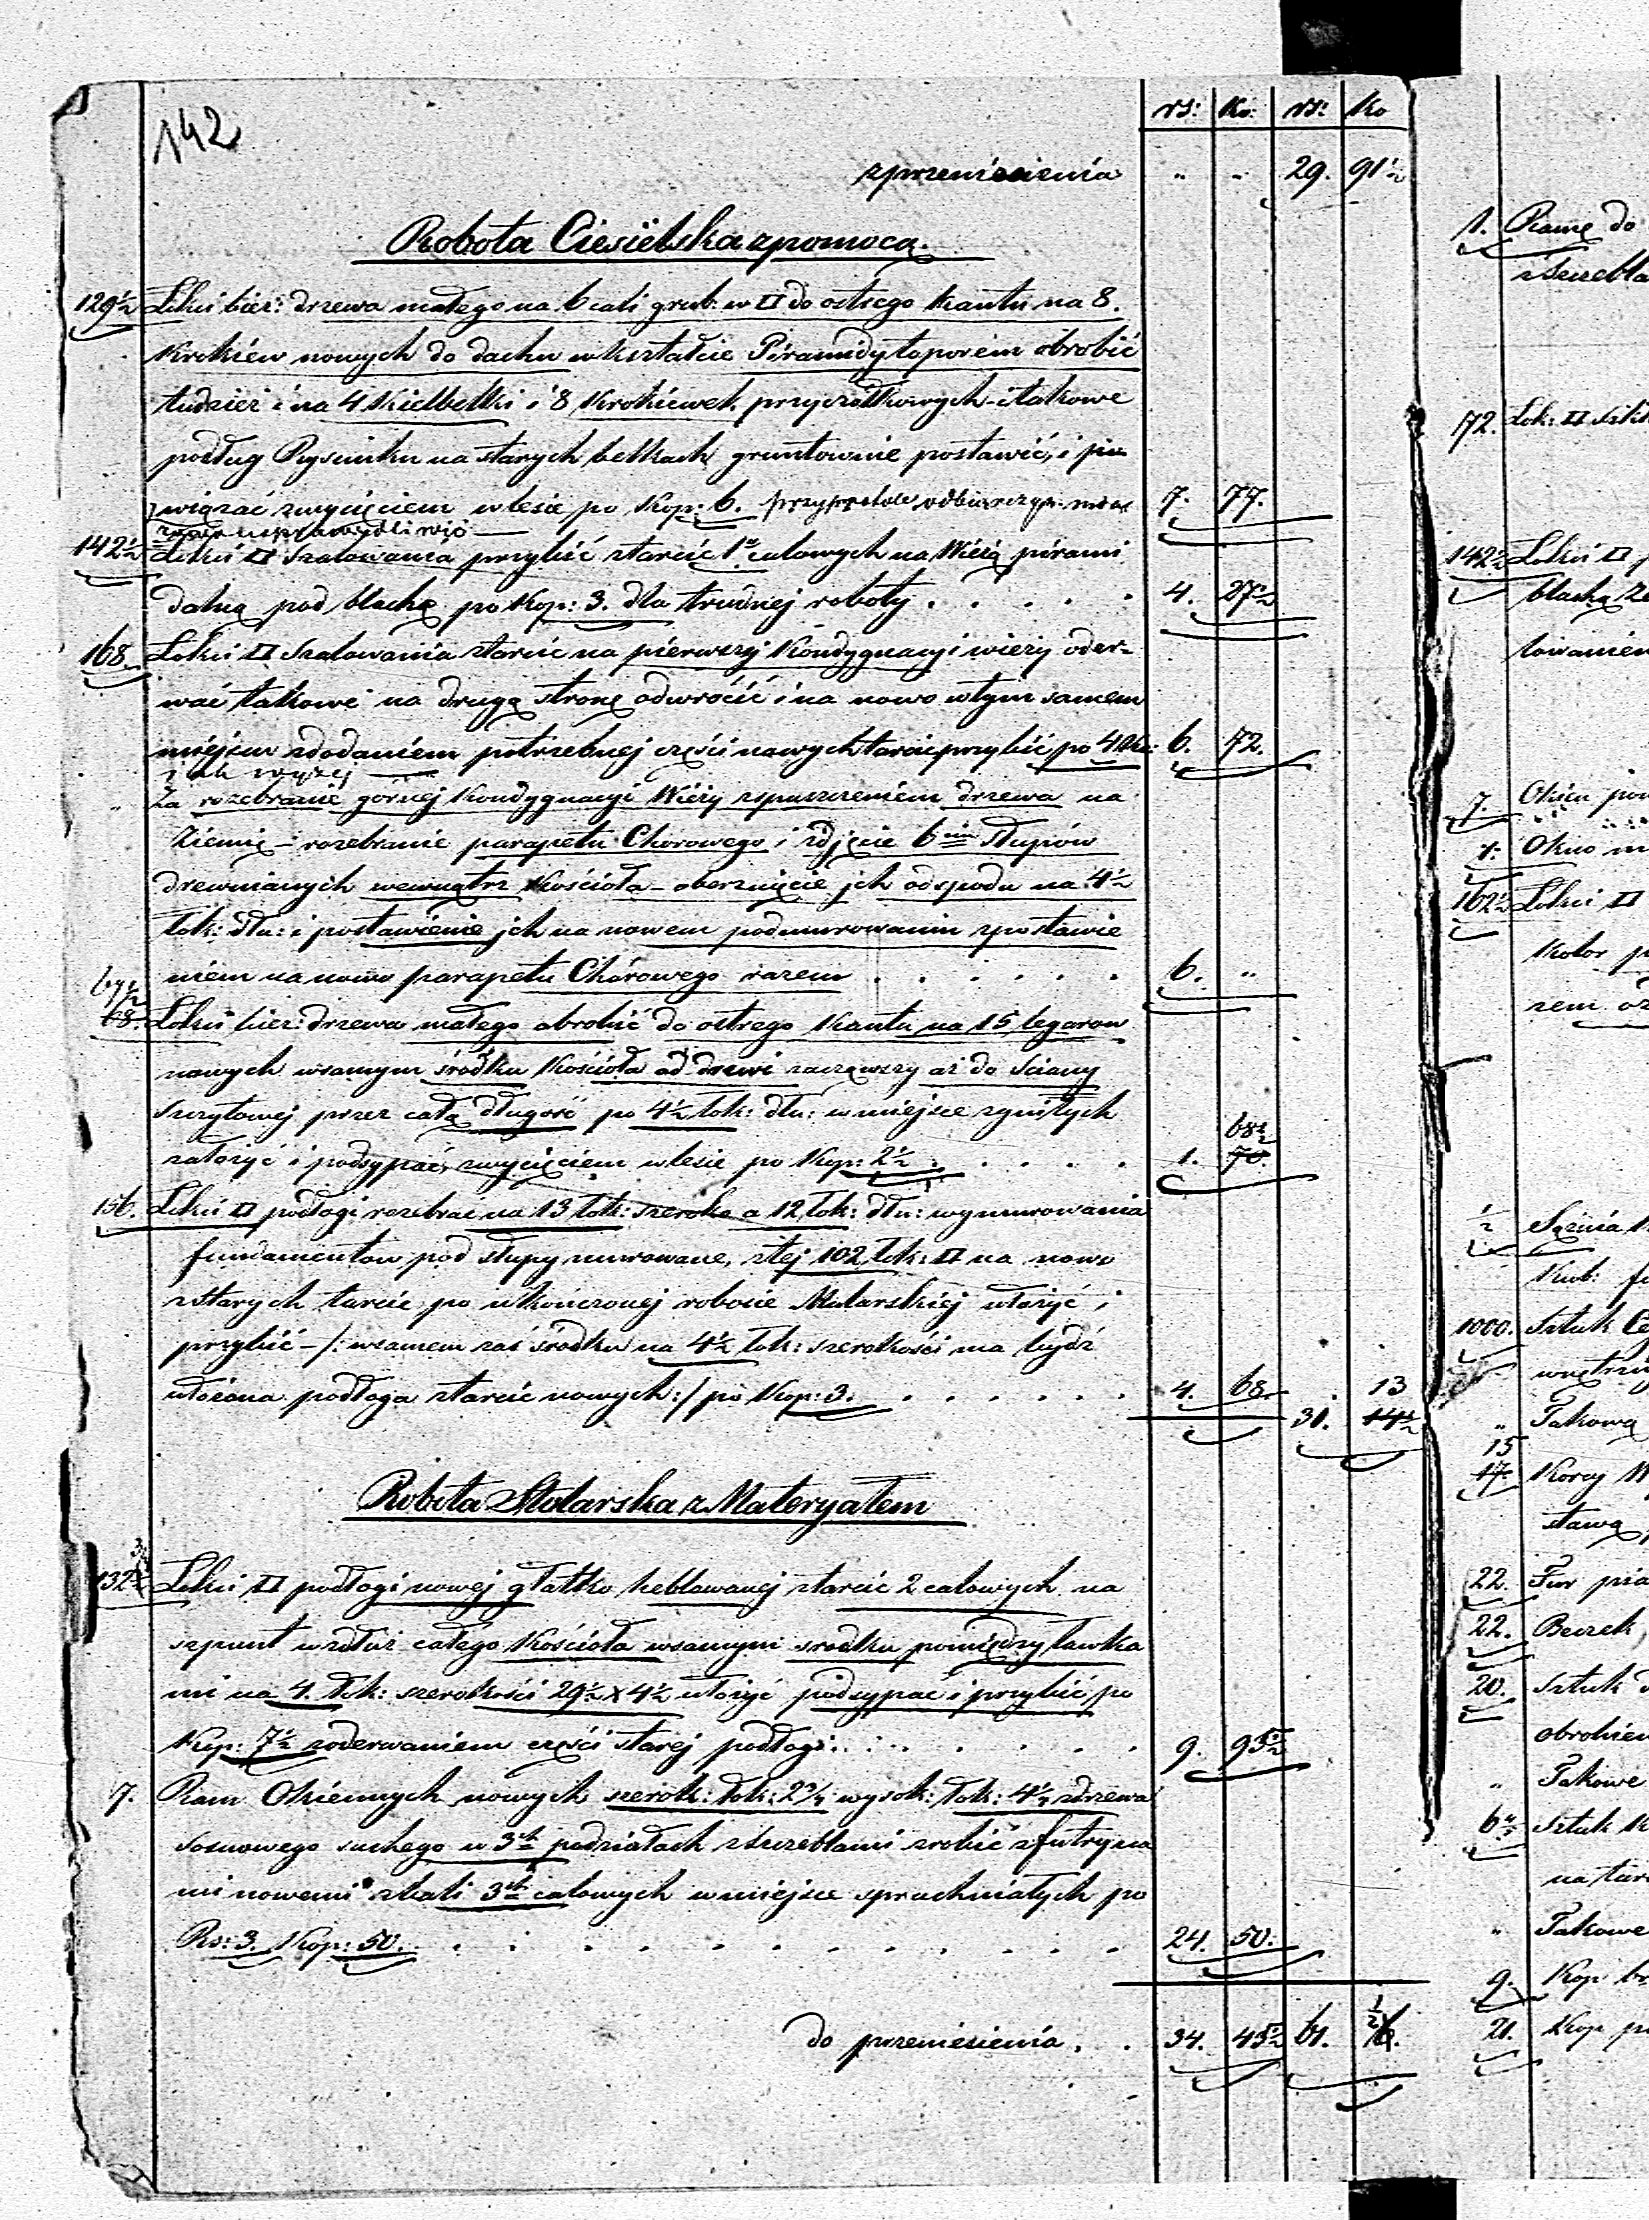 142
rs: ko: rs: ko
z przeniesienia " " 29. 91½
Robota Ciesielska z pomocą.
129½ Łokci bież: drzewa małego na 6 cali grub: w □ do ostrego kantu na 8.
krokiew nowych do dachu w kształcie Piramidy toporem obrobić
tudzież i na 4 Kielbelki i 8 Krokiewek przyczółkowych i takowe
podług Rysunku na starych belkach gruntownie postawić, i po
wiązać z wycięciem w lesie po Kop: 6. przy protok odbiorczym 7. 77.
usprawiedliwić
142½ Łokci □ Szalowania przybić z tarcic 1o calowych na Wieżą pirami
dalną pod blachę po Kop: 3. dla trudnej roboty . . . . . 4. 27½
168 Łokci □ Szalowania z tarcic na pierwszej Kondygnacyi wieży oder-
wać takowe na drugą stronę odwrócić i na nowo w tym samem
miejscu z dodaniem potrzebnej części nowych tarcic przybić po 4 Ko: 6. 72.
jak wyżej
" Za rozebranie górnej Kondygnacyi Wieży z spuszczeniem drzewa na
Ziemię – rozebranie parapetu Chorowego i zdjęcie 6ciu Słupów
drewnianych wewnątrz Kościoła – oberznięcie jch od spodu na 4½
Łok: dłu: i postawienie jch na nowem podmurowaniu z postawie
niem na nowo parapetu Chórowego razem . . . . . . 6. "
67½
68. Łokci bież: drzewa małego obrobić do ostrego Kantu na 15 legarow
nowych w samym środku Kościoła od drzwi zacząwszy aż do Sciany
Szczytowej przez całą długość po 4½ łok: dłu: w miejsce zgniłych
68½
założyć i podsypać z wycięciem w lesie po Kop: 2½ . . . . . 1. 70.
156. Łokci □ podłogi rozebrać na 13 łok: szeroko a 12 łok: dłu: wymurowania
fundamentow pod słupy murowane, z tej 102 łok: □ na nowo
z starych tarcic po ukończonej robocie Mularskiej ułożyć i
przybić – /: w samem zaś środku na 4½ łok: szerokości ma bydź
ułożona podłoga z tarcic nowych :/ po Kop: 3. . . . . . . 4. 68 . 13
31. 14½
Robota Stolarska z Materyałem
132¾ Łokci □ podłogi nowej gładko heblowanej z tarcic 2 calowych na
szpunt wzdłuż całego Kościoła w samym srodku pomiędzy ławka
mi na 4. łok: szerokości 29½ x 4½ ułożyć podsypać i przybić po
Kop: 7½ z oderwaniem części starej podłogi . . . . . . 9. 95½
7. Ram Okiennych nowych szerok: łok: 2¾ wysok: łok: 4¼ z drzewa
sosnowego suchego w 3ch podziałach z szczeblami zrobić z futryna
mi nowemi z bali 3ch calowych w miejsce spruchniałych po
Rs: 3. Kop: 50. . . . . . . . . . . . 24. 50.
do przeniesienia . . 34. 45½ 61. ½
1. Ramę do
z szczebla
72. Łok: □
142½ Łokci □
blachą
7. Okien
1. Okno
162½ Łokci □
Kolor
rem
½ Sążnia
Kub:
1000. Sztuk
wnętrz
" Takową
15
17. Korcy
stawą
22. Fur
22. Beczek
20. Sztuk
obrobien
" Takowe
Sztuk
na tar
" Takowe
9. Kop
21. Kop